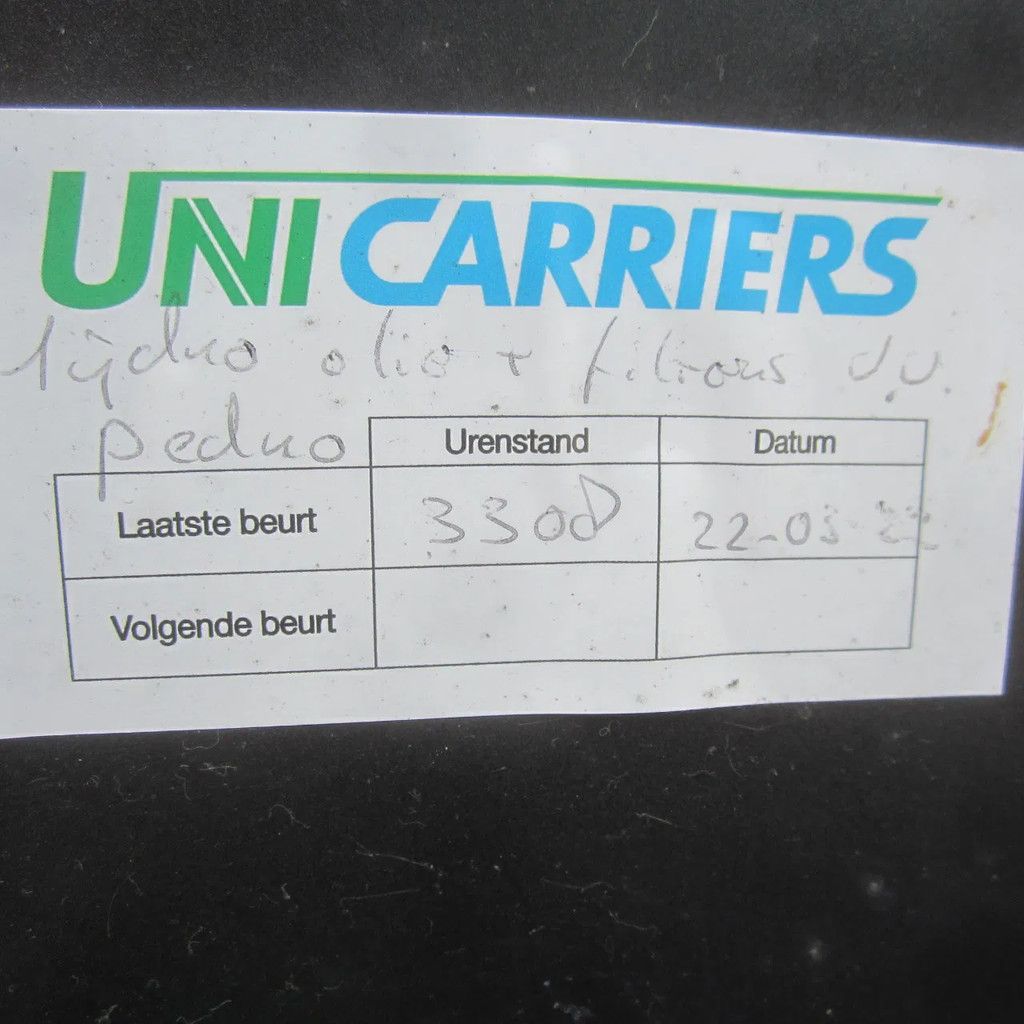 UNICARRIERS
hydro olie + filters v.v.
pedro
Urenstand Datum
Laatste beurt 3308 22-03 22
Volgende beurt